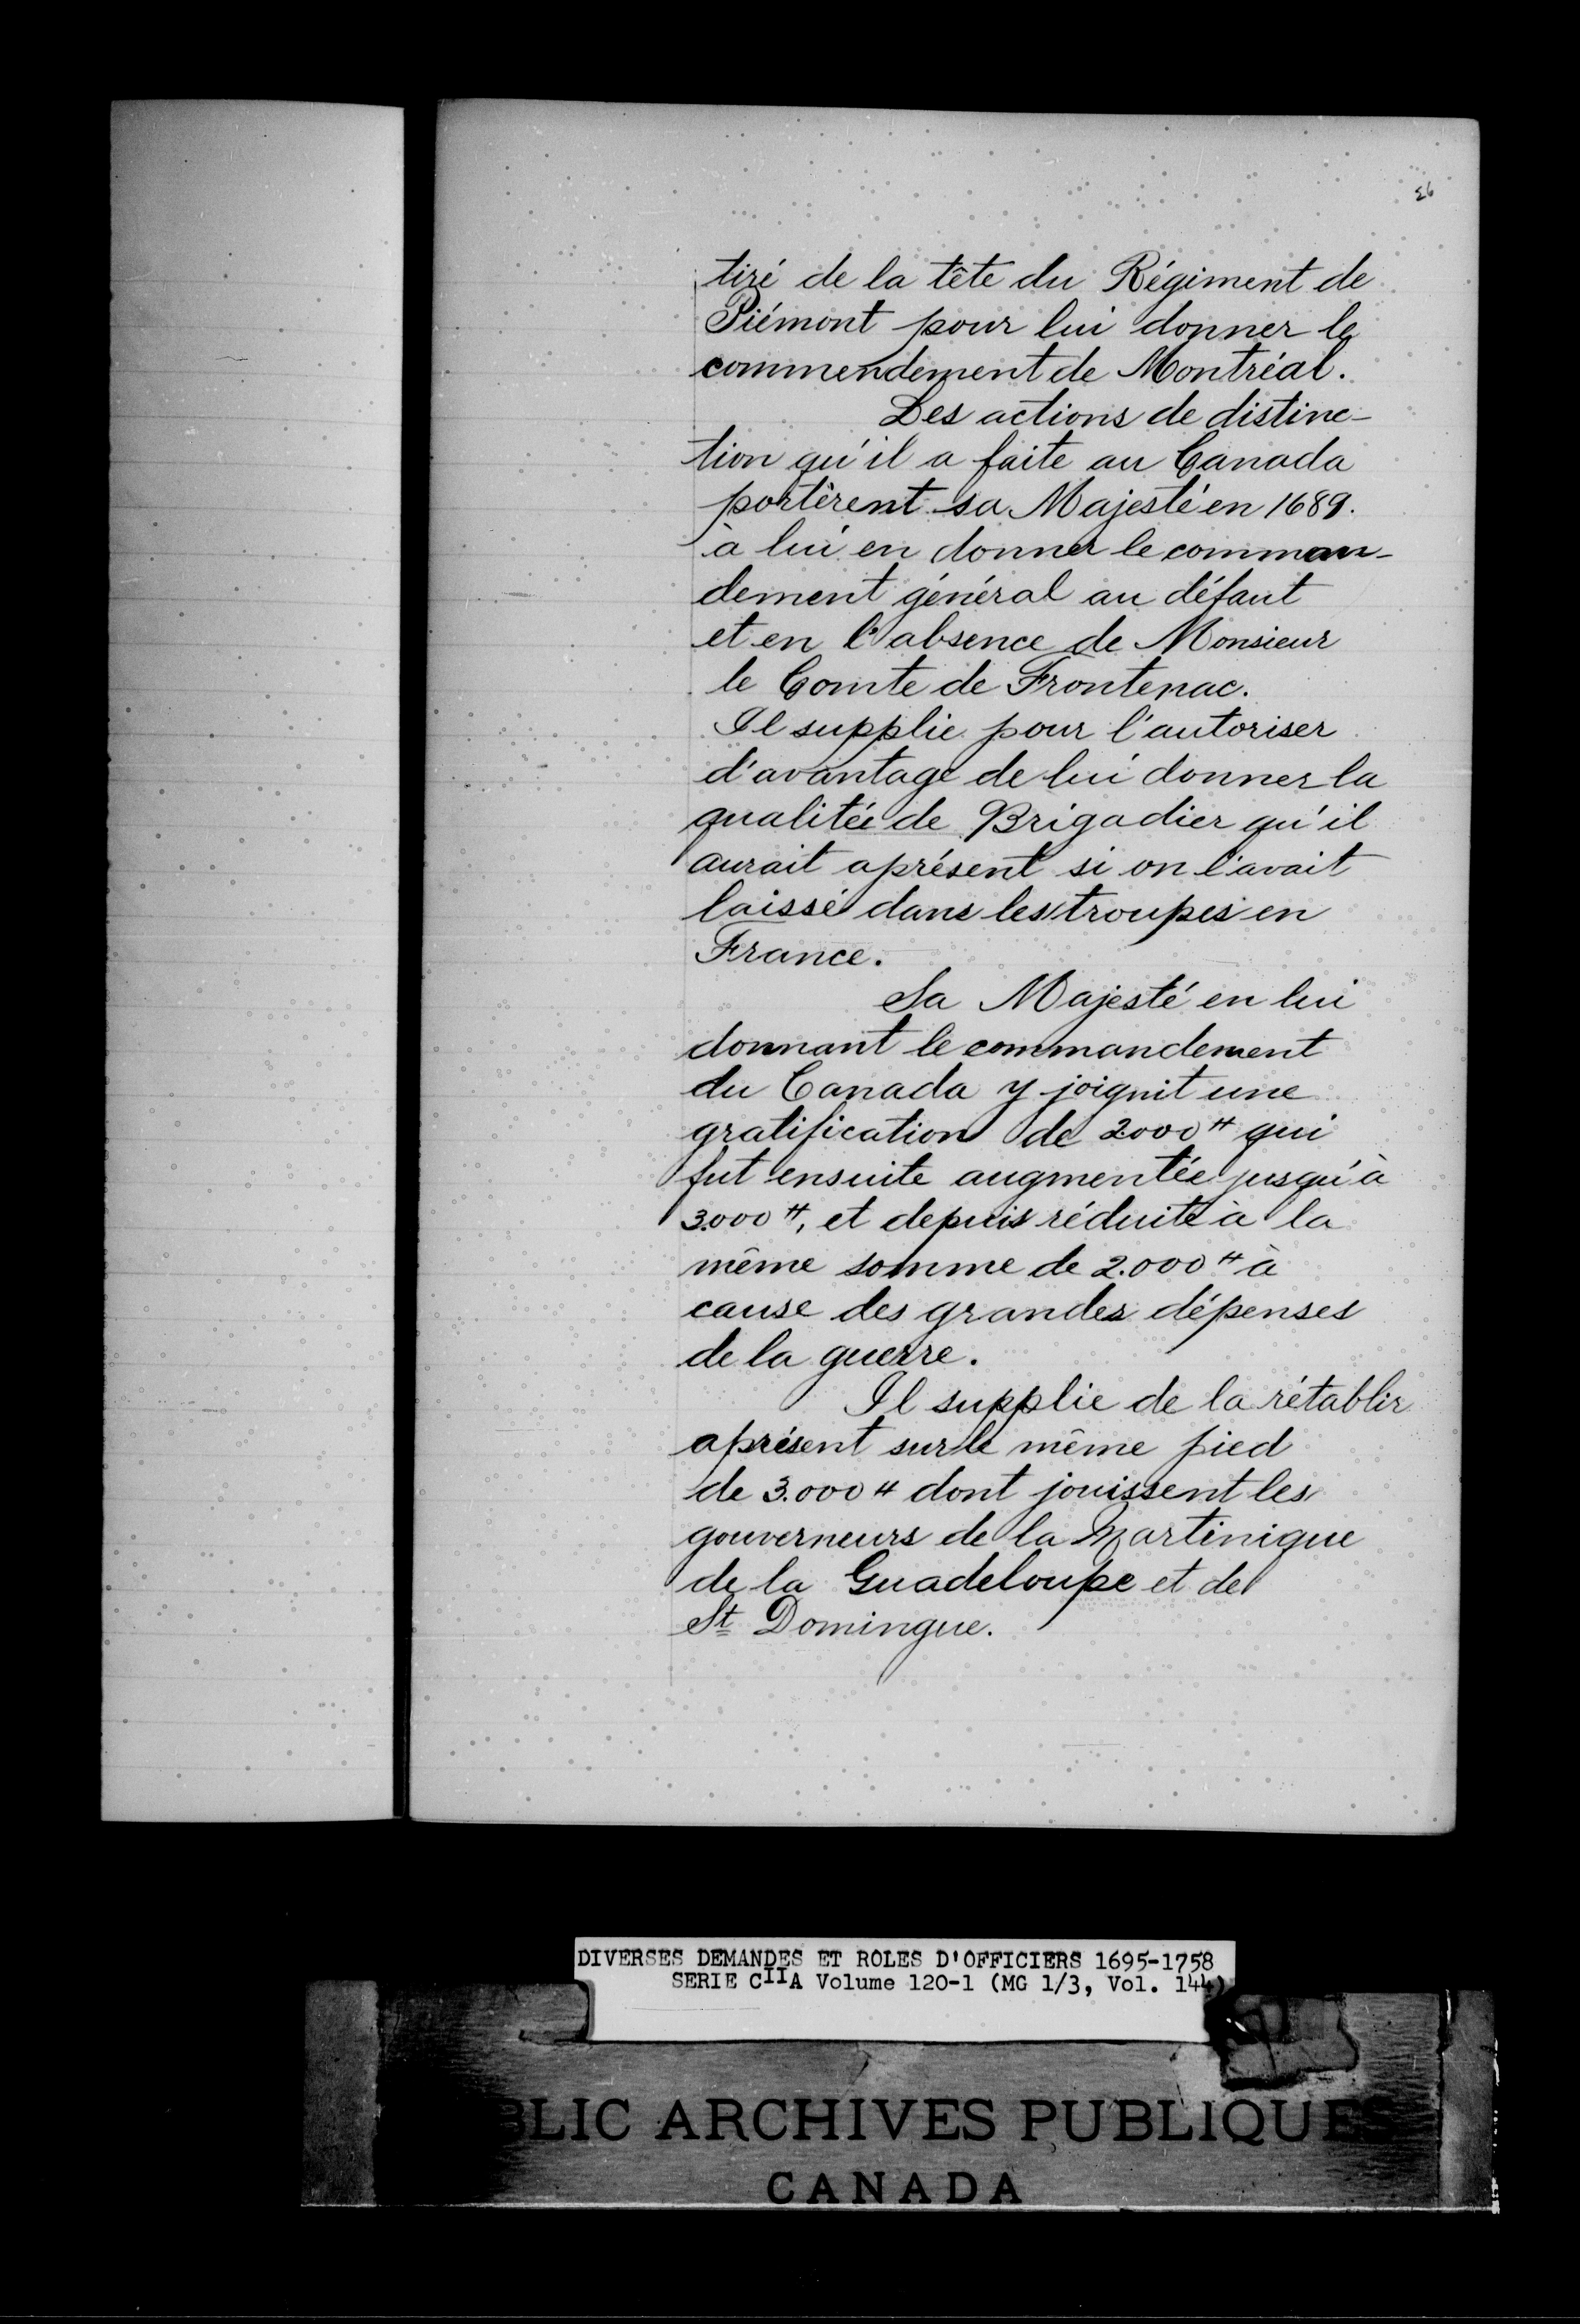 26
tiré de la tête du Régiment de
Piémont pour lui donner le
commendement de Montréal.
Les actions de distinc-
tion qu'il a faite au Canada
portèrent sa Majesté en 1689.
à lui en donner le comman-
dement général au défaut
et en l'absence de Monsieur
le Comte de Frontenac.
Il supplie pour l'autoriser
d'avantage de lui donner la
qualitée de Brigadier qu'il
aurait aprésent si on l'avait
laissé dans les troupes en
France.
Sa Majesté en lui
donnant le commandement
du Canada y joignit une
gratification de 2000 ₶ qui
fut ensuite augmentée jusqu'à
3.000 ₶, et depuis réduite à la
même somme de 2.000 ₶ à
cause des grandes dépenses
de la guerre.
Il supplie de la rétablir
aprésent sur le même pied
de 3.000 ₶ dont jouissent les
gouverneurs de la Martinique
de la Guadeloupe et de
St Domingue.
DIVERSES DEMANDES ET ROLES D'OFFICIERS 1695-1758
SERIE CIIA Volume 120-1 (MG 1/3, Vol. 144)
BLIC ARCHIVES PUBLIQUES
CANADA